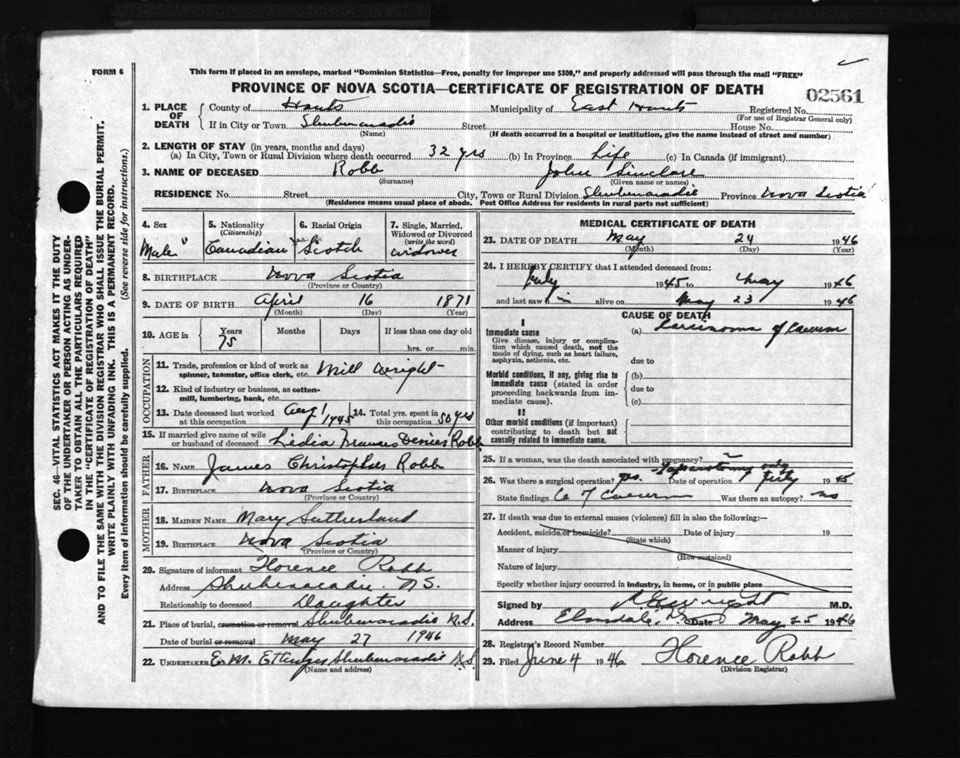 FORM 6
This form if placed in an envelope, marked "Dominion Statistics—Free, penalty for improper use $300," and properly addressed will pass through the mail "FREE"
PROVINCE OF NOVA SCOTIA—CERTIFICATE OF REGISTRATION OF DEATH
02561
1. PLACE OF DEATH
County of Hants Municipality of East Hants Registered No.
(For use of Registrar General only)
If in City or Town Shubenacadie Street House No.
(Name) (If death occurred in a hospital or institution, give the name instead of street and number)
2. LENGTH OF STAY (in years, months and days)
(a) In City, Town or Rural Division where death occurred 32 yrs (b) In Province Life (c) In Canada (if immigrant)
3. NAME OF DECEASED Robb John Sinclare
(Surname) (Given name or names)
RESIDENCE No. Street City, Town or Rural Division Shubenacadie Province Nova Scotia
(Residence means usual place of abode. Post Office Address for residents in rural parts not sufficient)
4. Sex
Male
5. Nationality
(Citizenship)
Canadian
6. Racial Origin
Scotch
7. Single, Married, Widowed or Divorced
(write the word)
widower
8. BIRTHPLACE Nova Scotia
(Province or Country)
9. DATE OF BIRTH April 16 1871
(Month) (Day) (Year)
10. AGE in Years Months Days If less than one day old
75 hrs. or min.
OCCUPATION
11. Trade, profession or kind of work as spinner, teamster, office clerk, etc. Mill Wright
12. Kind of industry or business, as cotton-mill, lumbering, bank, etc.
13. Date deceased last worked at this occupation 1945 14. Total yrs. spent in this occupation 50 yrs
15. If married give name of wife or husband of deceased Lidia Frances Robb
FATHER
16. NAME James Christopher Robb
17. BIRTHPLACE Nova Scotia
(Province or Country)
MOTHER
18. MAIDEN NAME Mary Sutherland
19. BIRTHPLACE Nova Scotia
(Province or Country)
20. Signature of informant Florence Robb
Address Shubenacadie N.S.
Relationship to deceased Daughter
21. Place of burial, cremation or removal Shubenacadie N.S.
Date of burial or removal May 27 1946
22. UNDERTAKER E. M. Ettinger Shubenacadie N.S.
(Name and address)
MEDICAL CERTIFICATE OF DEATH
23. DATE OF DEATH May 24 1946
(Month) (Day) (Year)
24. I HEREBY CERTIFY that I attended deceased from:
July 1945 to May 1946
and last saw h im alive on May 23 1946
CAUSE OF DEATH
I
Immediate cause (a) Carcinoma of Caecum
Give disease, injury or complication which caused death, not the mode of dying, such as heart failure, asphyxia, asthenia, etc.
due to
Morbid conditions, if any, giving rise to immediate cause (stated in order proceeding backwards from immediate cause).
(b)
due to
(c)
II
Other morbid conditions (if important) contributing to death but not causally related to immediate cause.
25. If a woman, was the death associated with pregnancy?
Laparotomy only
26. Was there a surgical operation? yes. Date of operation July 1945
State findings Ca of Caecum Was there an autopsy? no
27. If death was due to external causes (violence) fill in also the following:—
Accident, suicide or homicide? Date of injury 19
(State which)
Manner of injury
(How sustained)
Nature of injury
Specify whether injury occurred in industry, in home, or in public place
Signed by M.D.
Address Elmsdale Date May 25 1946
28. Registrar's Record Number
29. Filed June 4 1946 Florence Robb
(Division Registrar)
SEC. 46—VITAL STATISTICS ACT MAKES IT THE DUTY
OF THE UNDERTAKER OR PERSON ACTING AS UNDER-
TAKER TO OBTAIN ALL THE PARTICULARS REQUIRED
IN THE "CERTIFICATE OF REGISTRATION OF DEATH"
AND TO FILE THE SAME WITH THE DIVISION REGISTRAR WHO SHALL ISSUE THE BURIAL PERMIT.
WRITE PLAINLY WITH UNFADING INK. THIS IS A PERMANENT RECORD.
Every item of information should be carefully supplied. (See reverse side for instructions.)